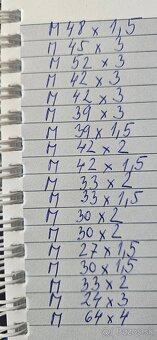 M 48 x 1,5
M 45 x 3
M 52 x 3
M 42 x 3
M 42 x 3
M 39 x 3
M 39 x 1,5
M 42 x 2
M 42 x 1,5
M 33 x 2
M 33 x 1,5
M 30 x 2
M 30 x 2
M 27 x 1,5
M 30 x 1,5
M 33 x 2
M 24 x 3
M 64 x 4